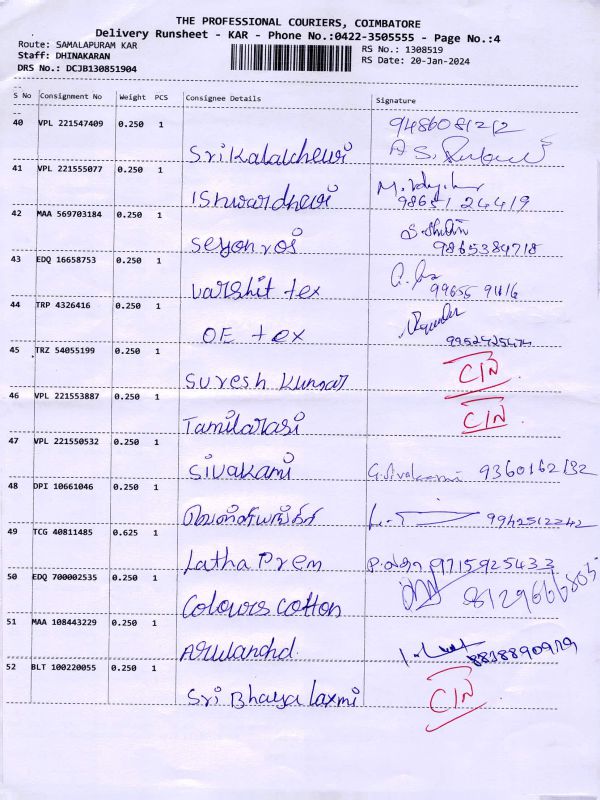 THE PROFESSIONAL COURIERS, COIMBATORE
Delivery Runsheet - KAR - Phone No.:0422-3505555 - Page No.:4
Route: SAMALAPURAM KAR
RS No.: 1308519
Staff: DHINAKARAN
RS Date: 20-Jan-2024
DRS No.: DCJB130851904
S No Consignment No Weight PCS Consignee Details Signature
40 VPL 221547409 0.250 1
9486081212
Srikalalchewi
41 VPL 221555077 0.250 1
Ishwardhewi 98651 24419
42 MAA 569703184 0.250 1
Seyon ros 9865384718
43 EDQ 16658753 0.250 1
varshit tex 99655 9416
44 TRP 4326416 0.250 1
OE tex 9952425474
45 TRZ 54055199 0.250 1
Suresh Kumar C/N
46 VPL 221553887 0.250 1
Tamilarasi C/N
47 VPL 221550532 0.250 1
Sivakami G. Sivakami 9360162132
48 DPI 10661046 0.250 1
9942512242
49 TCG 40811485 0.625 1
Latha Prem 9715925433
50 EDQ 700002535 0.250 1
Colours cotton 8129666805
51 MAA 108443229 0.250 1
Arulanahd. 8838890979
52 BLT 100220055 0.250 1
Sri Bhaya laxmi C/N